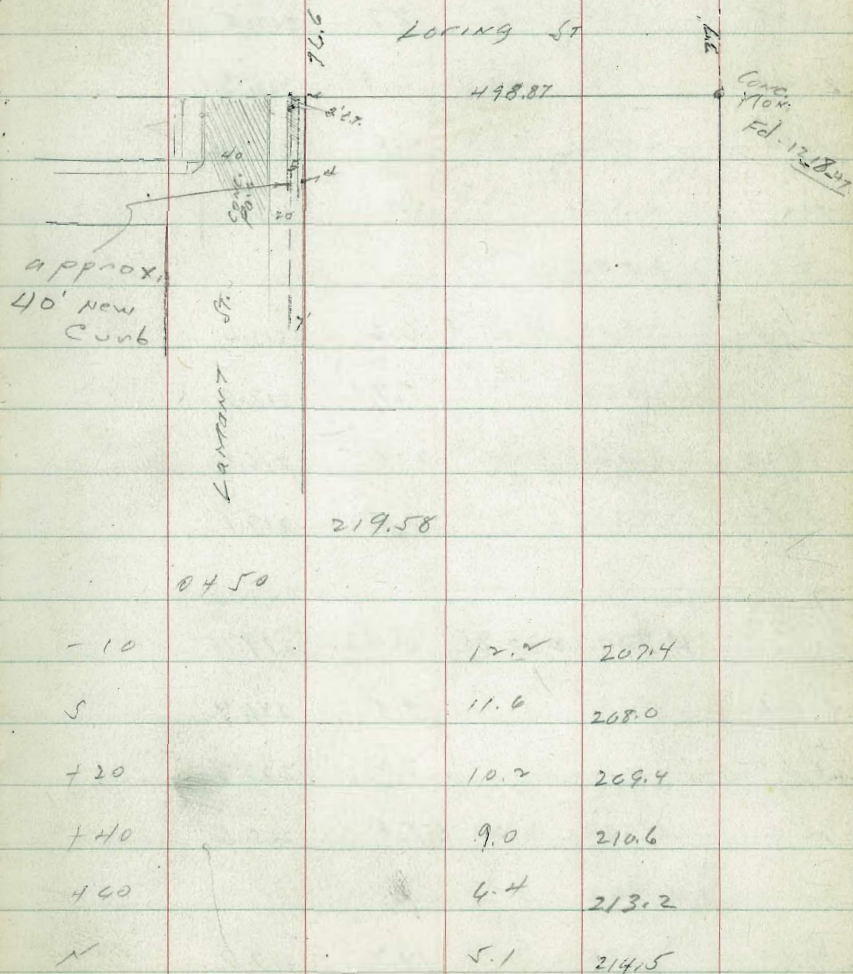 LORING ST
498.87
Conc. Mon. Fd. 12-18-47
2' LT.
40
Conc. Po
20
approx.
40' New
Curb
LAMONT ST.
219.58
0+50
-10 12.2 207.4
S 11.6 208.0
+20 10.2 209.4
+40 9.0 210.6
+60 6.4 213.2
N 5.1 214.5